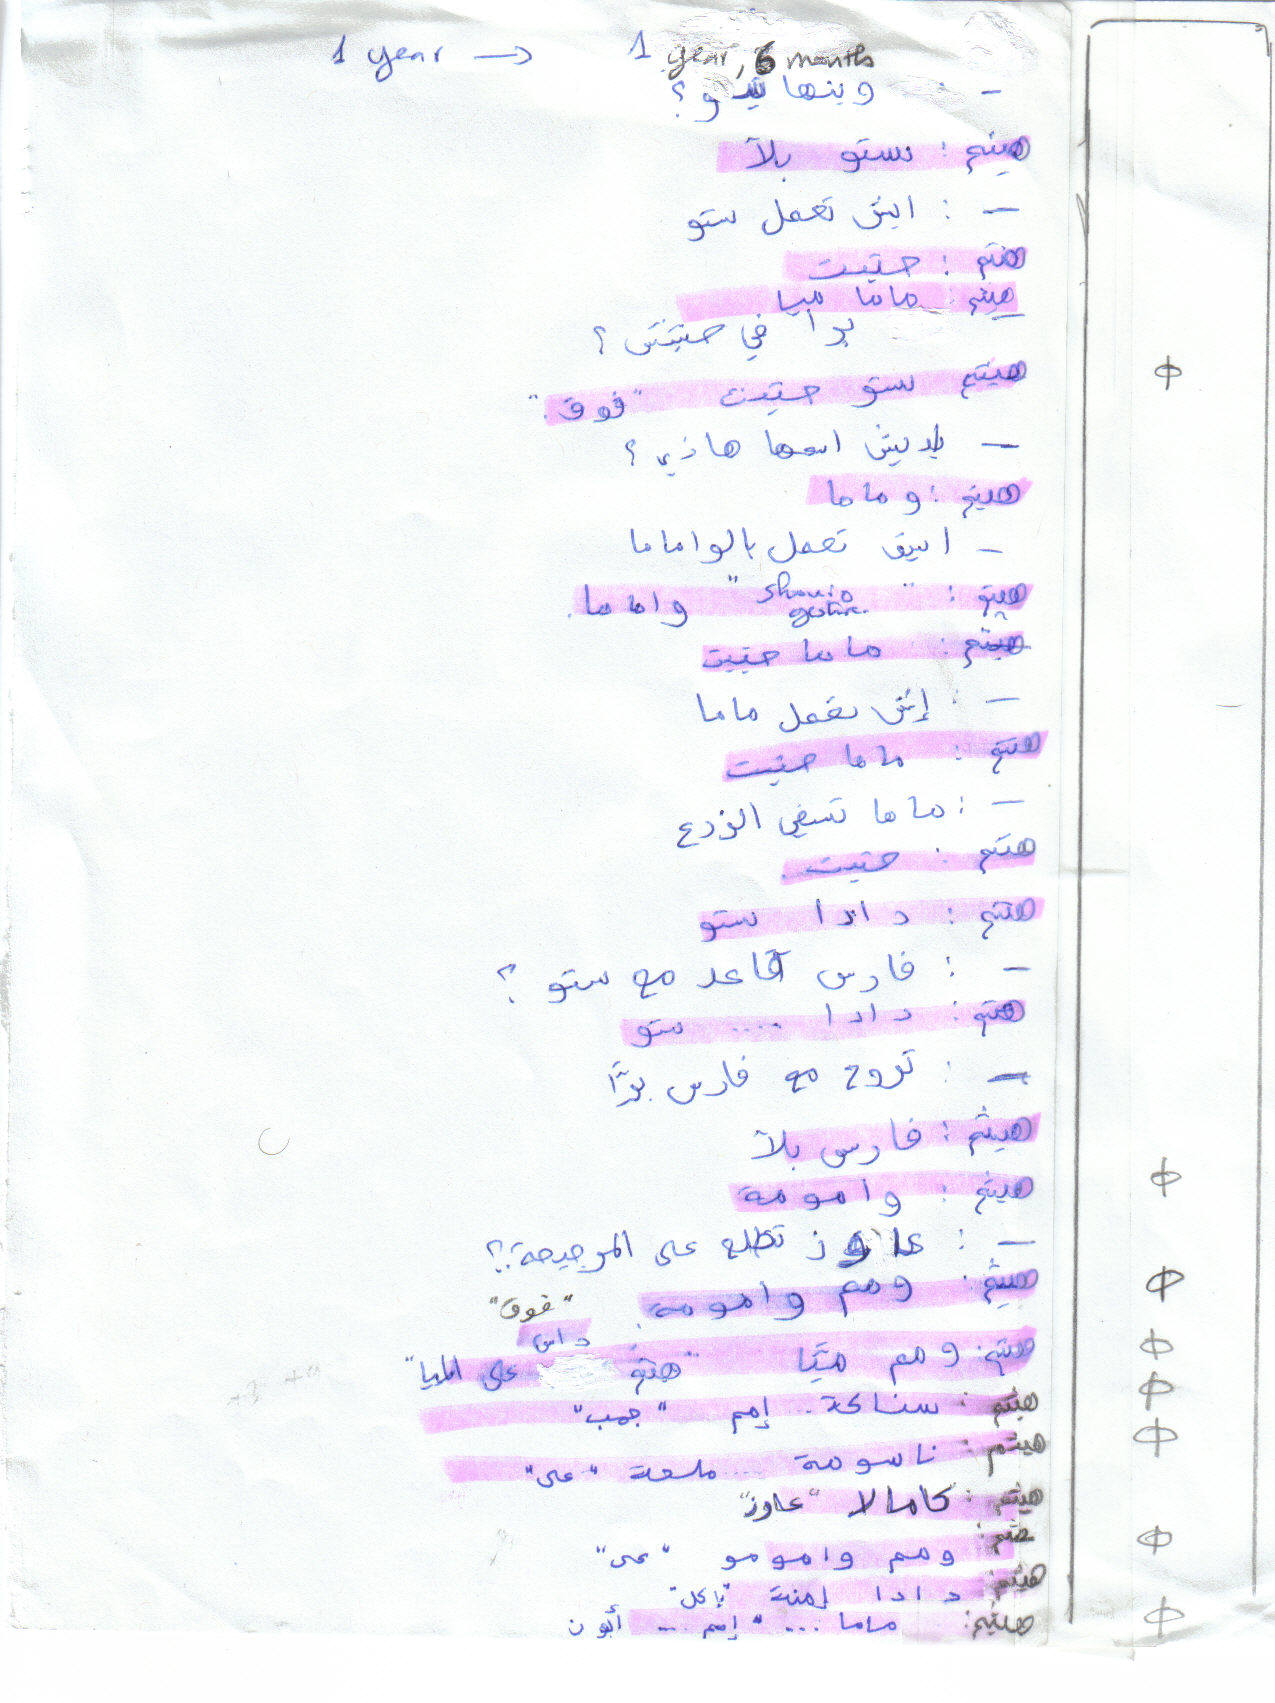 1 year → 1 year, 6 months
- وينها ستو؟
هيثم: ستو بلآ
- : ايش تعمل ستو
هيثم: حتيت
هيثم: ماما ميا
برا في حتيتش؟
هيثم ستو حتيت "فوق"
- ايش اسمها هاذي؟
هيثم: وماما
- ايش تعمل بالواماما
هيثم: " " واماما.
هيثم: ماما حتيت
- : إش تعمل ماما
هيثم: ماما حتيت
- : ماما تسقي الزرع
هيثم: حتيت.
هيثم: دادا ستو
- : فارس قاعد مع ستو؟
هيثم: دادا .... ستو
- : تروح مع فارس برّا
هيثم: فارس بلآ
هيثم: وامومة
- : عاوز تطلع على المرجيحة؟
هيثم: ومم وامومة. "فوق"
هيثم: ومم ميّا "هيثم داس على الميا"
هيثم: سناكة.. إمم "جمب"
هيثم: ناسومة ... ملسعة "على"
هيثم: كامالا "عاوز"
هيثم: ومم وامومو "على"
هيثم: دادا إمنة "باكل"
هيثم: ماما ... "إمم ... أبون